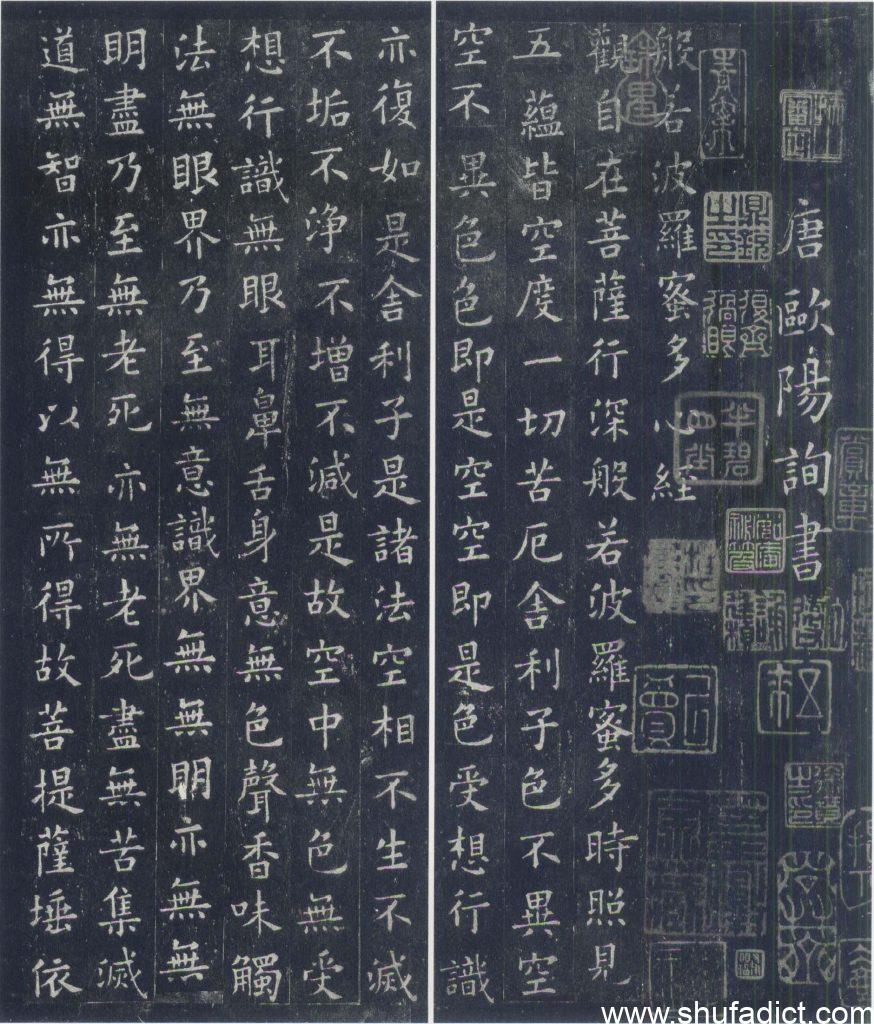 唐歐陽詢書
般若波羅蜜多心經
觀自在菩薩行深般若波羅蜜多時照見
五蘊皆空度一切苦厄舍利子色不異空
空不異色色即是空空即是色受想行識
亦復如是舍利子是諸法空相不生不滅
不垢不淨不增不減是故空中無色無受
想行識無眼耳鼻舌身意無色聲香味觸
法無眼界乃至無意識界無無明亦無無
明盡乃至無老死亦無老死盡無苦集滅
道無智亦無得以無所得故菩提薩埵依
www.shufadict.com